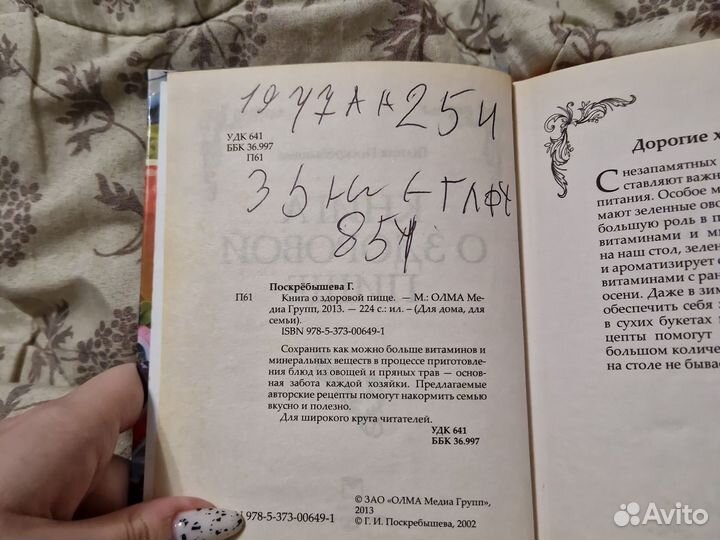 1977АН254
УДК 641
ББК 36.997
П61
854
Поскрёбышева Г.
П61 Книга о здоровой пище. — М.: ОЛМА Ме-
диа Групп, 2013. — 224 с.: ил. – (Для дома, для
семьи).
ISBN 978-5-373-00649-1
Сохранить как можно больше витаминов и
минеральных веществ в процессе приготовле-
ния блюд из овощей и пряных трав — основ-
ная забота каждой хозяйки. Предлагаемые
авторские рецепты помогут накормить семью
вкусно и полезно.
Для широкого круга читателей.
УДК 641
ББК 36.997
978-5-373-00649-1
© ЗАО «ОЛМА Медиа Групп»,
2013
© Г. И. Поскребышева, 2002
Дорогие х
С незапамятных
ставляют важн
питания. Особое м
мают зеленные ово
большую роль в п
витаминами и ми
на наш стол, зелен
и ароматизирует с
витаминами с ран
осени. Даже в зим
обеспечить себя з
в сухих букетах п
цепты помогут
большом количе
на столе не бывае
Avito